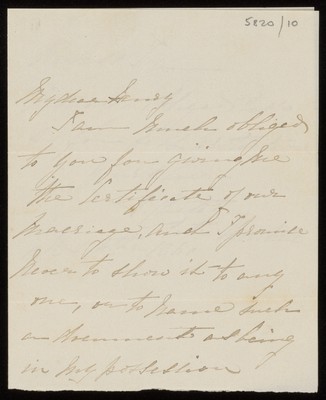 5820/10
My dear Henry
I am much obliged
to you for giving me
the Certificate of our
marriage, and I promise
never to show it to any
one, or to name such
a document as being
in my possession